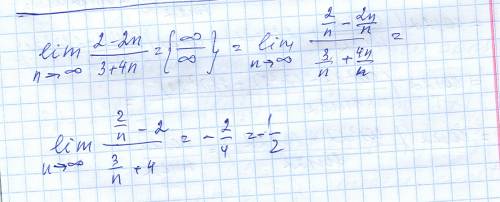 lim n→∞ (2-2n)/(3+4n) = {∞/∞} = lim n→∞ (2/n - 2n/n)/(3/n + 4n/n) =
lim n→∞ (2/n - 2)/(3/n + 4) = -2/4 = -1/2